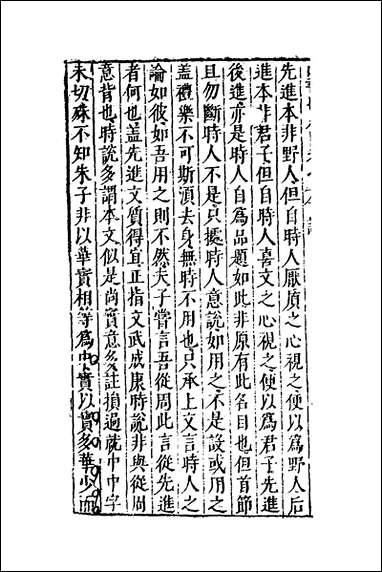 先進本非野人但自時人厭質之心視之便以爲野人后
進本非君子但自時人喜文之心視之便以爲君子先進
後進亦是時人自爲品題如此非原有此名目也但首節
且勿斷時人不是只據時人意說如用之不是設或用之
蓋禮樂不可斯須去身無時不用也只承上文言時人之
論如彼如吾用之則不然夫子嘗言吾從周此言從先進
者何也蓋先進文質得宜正指文武成康時說非與從周
意背也時說多謂本文似是尚實意多註損過就中中字
未切殊不知朱子非以華實相等爲中實以實多華少而